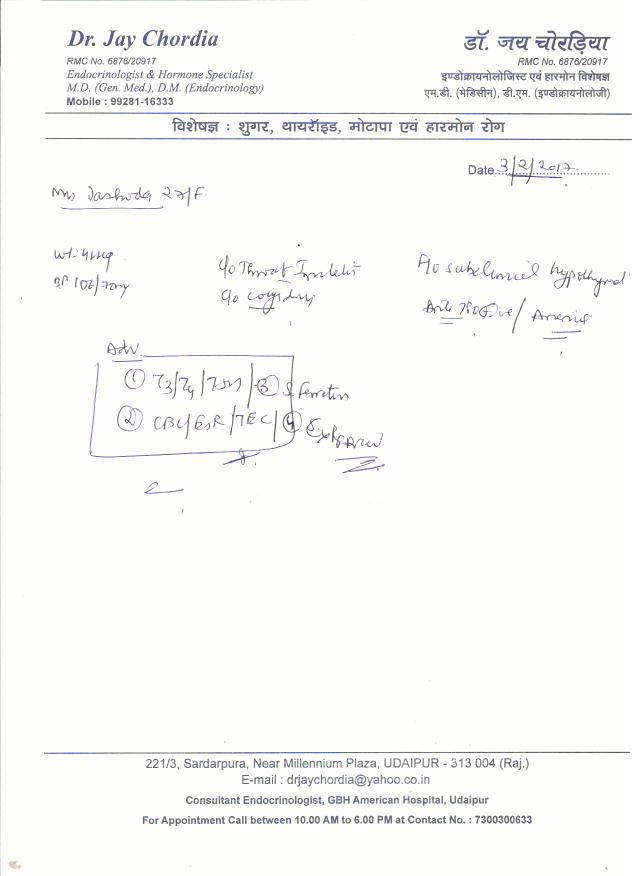 Dr. Jay Chordia
RMC No. 6876/20917
Endocrinologist & Hormone Specialist
M.D. (Gen. Med.), D.M. (Endocrinology)
Mobile : 99281-16333
डॉ. जय चोरड़िया
RMC No. 6876/20917
इण्डोक्रायनोलोजिस्ट एवं हारमोन विशेषज्ञ
एम.डी. (मेडिसीन), डी.एम. (इण्डोक्रायनोलोजी)
विशेषज्ञ : शुगर, थायरॉइड, मोटापा एवं हारमोन रोग
Date 3/2/2017
Mrs Jashoda 27/F
BP 102/70
c/o Throat
c/o
Anti TPO +ve / Anemia
Adv
① T3/T4/TSH / ③ S. Ferritin
② CBC/ESR/TEC/ ④
221/3, Sardarpura, Near Millennium Plaza, UDAIPUR - 313 004 (Raj.)
E-mail : drjaychordia@yahoo.co.in
Consultant Endocrinologist, GBH American Hospital, Udaipur
For Appointment Call between 10.00 AM to 6.00 PM at Contact No. : 7300300633